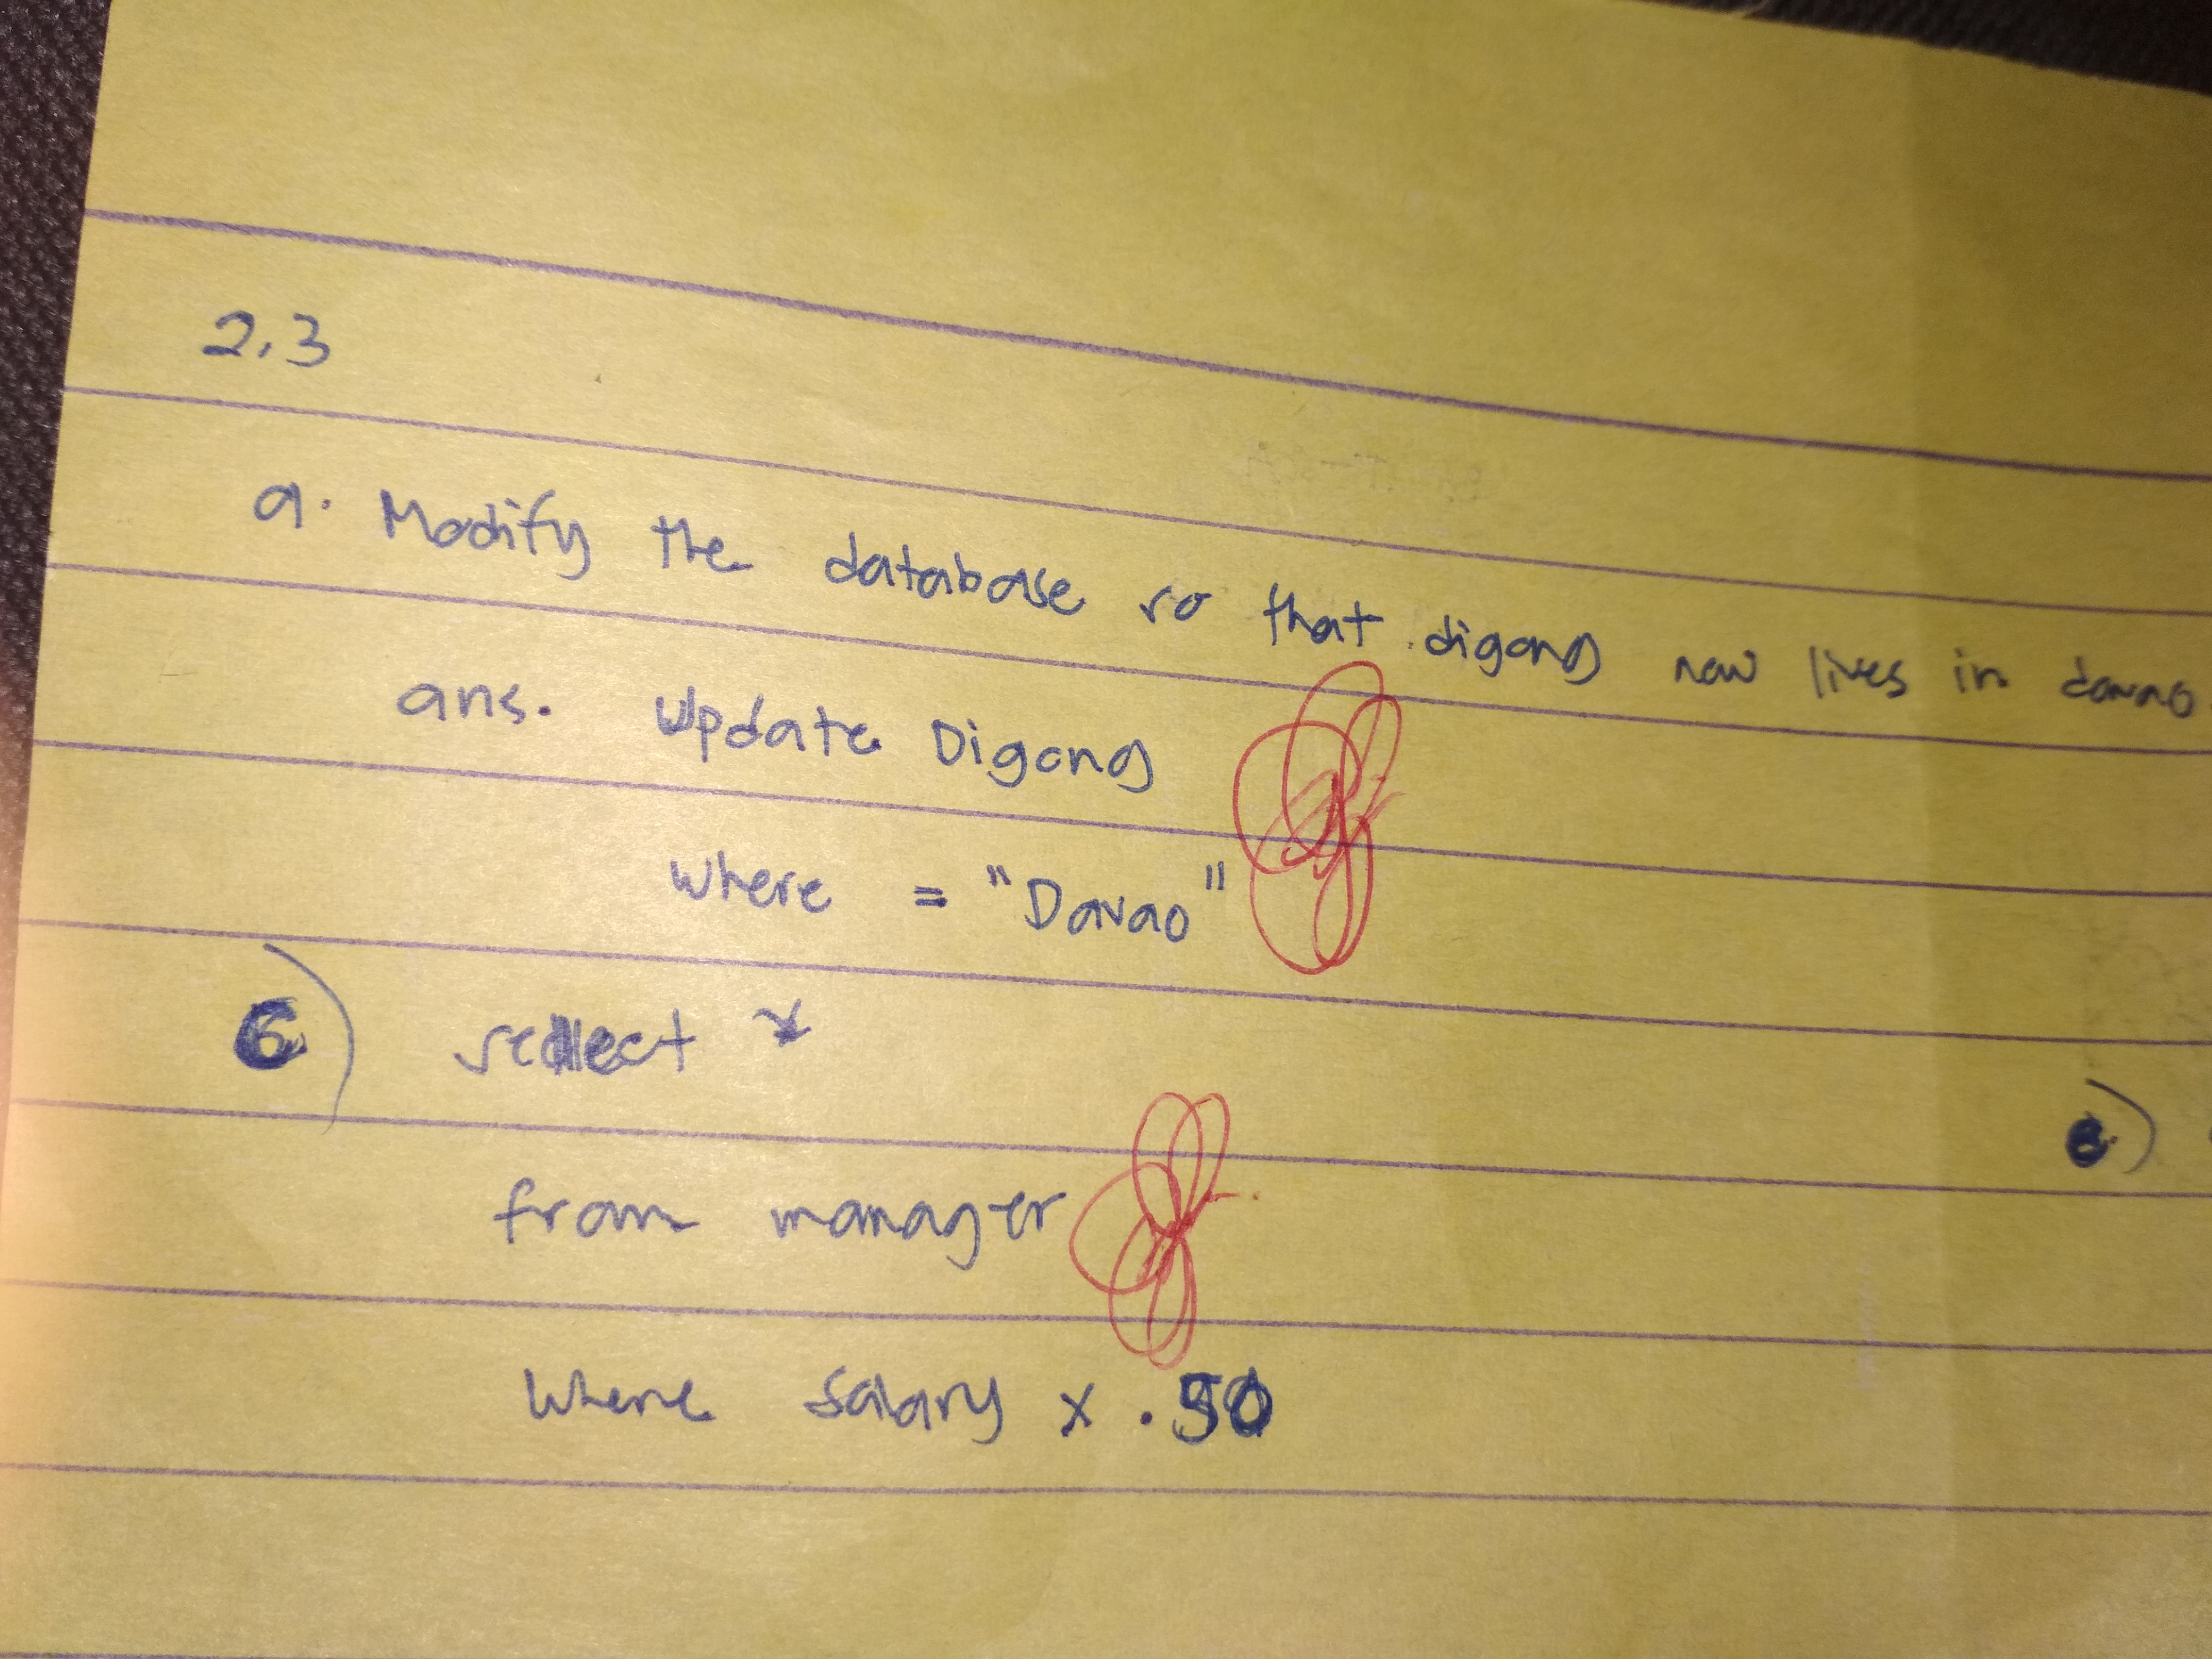 2.3
a. Modify the database so that digong now lives in davao.
ans. Update Digong
where = "Davao"
c) select *
e)
from manager
where salary x .50